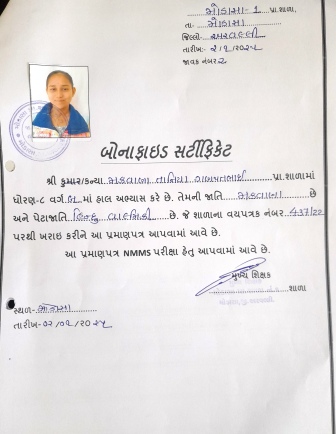 મોડાસા-1 પ્રા.શાળા,
તા- મોડાસા
જિલ્લો- અરવલ્લી
તારીખ:- ૨/૧/૨૦૨૫
જાવક નંબર ૨
બોનાફાઇડ સર્ટીફિકેટ
શ્રી કુમાર/કન્યા મકવાણા તાનિયા પ્રા.શાળામાં
ધોરણ-૮ વર્ગ બ માં હાલ અભ્યાસ કરે છે. તેમની જાતિ મકવાણા છે
અને પેટાજાતિ હિન્દુ વાલ્મિકી છે. જે શાળાના વયપત્રક નંબર 437/22
પરથી ખરાઇ કરીને આ પ્રમાણપત્ર આપવામાં આવે છે.
આ પ્રમાણપત્ર NMMS પરીક્ષા હેતુ આપવામાં આવે છે.
મુખ્ય શિક્ષક
શાળા
સ્થળ- મોડાસા
તારીખ-૦૨/૦૧/૨૦૨૫